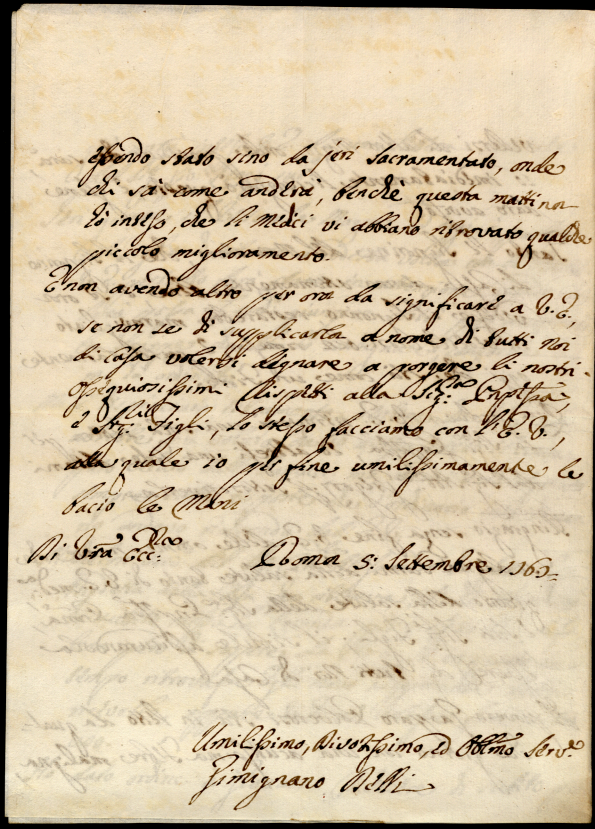 essendo stato sino da jeri sacramentato, onde
chi sà come anderà, benchè questa mattina
hò inteso, che li Medici vi abbiano ritrovato qualche
piccolo miglioramento.
E non avendo altro per ora da significare a V. E.,
se non se di supplicarla a nome di tutti noi
di Casa volersi degnare a porgere li nostri
ossequiosissimi rispetti alla Sig.ra
e Sig.li Figli, lo stesso facciamo con l'E. V.,
alla quale io per fine umilissimamente le
bacio le Mani
Di Vra Ecc.
Roma 5: Settembre
Umilissimo, Divotissimo, ed Obblmo Serv.e
Gimignano Belli